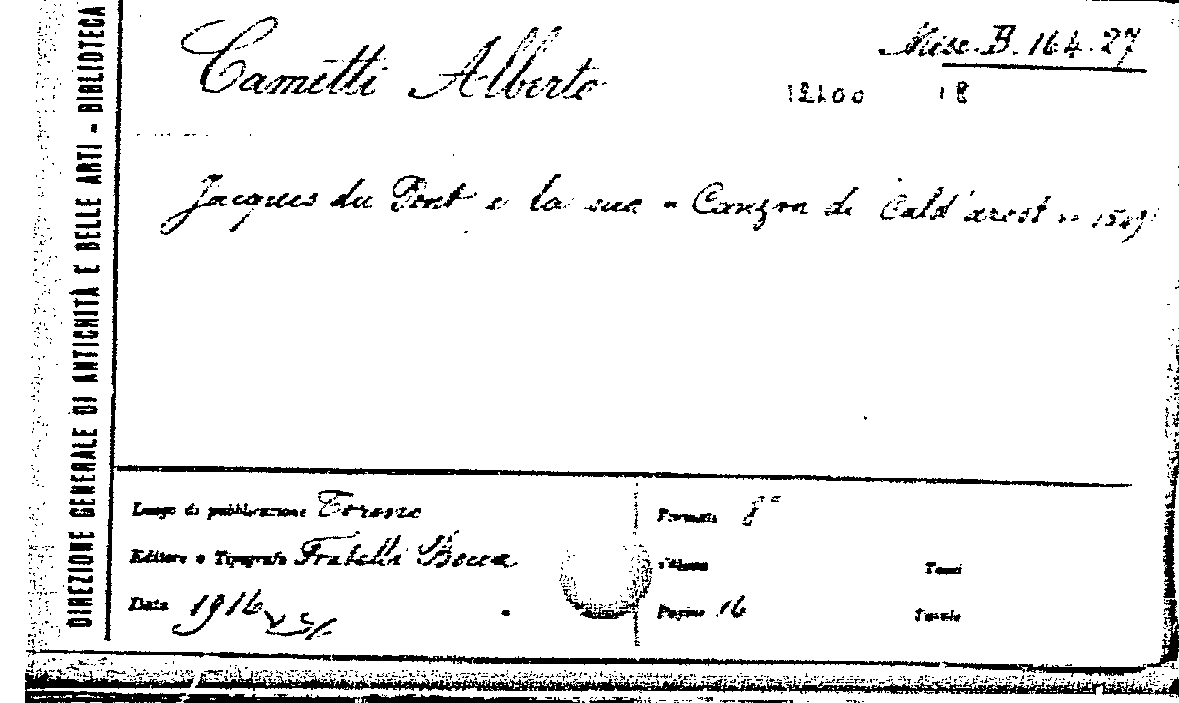 DIREZIONE GENERALE DI ANTICHITÀ E BELLE ARTI - BIBLIOTECA
Misc. B. 164. 27
Cametti Alberto
12400 18
Jacques du Pont e la sua "Canzon di Cald'arost"
Luogo di pubblicazione Torino
Formato 8°
Editore o Tipografo Fratelli Bocca
Volume
Tomi
Data 1916
Pagine 16
Tavole